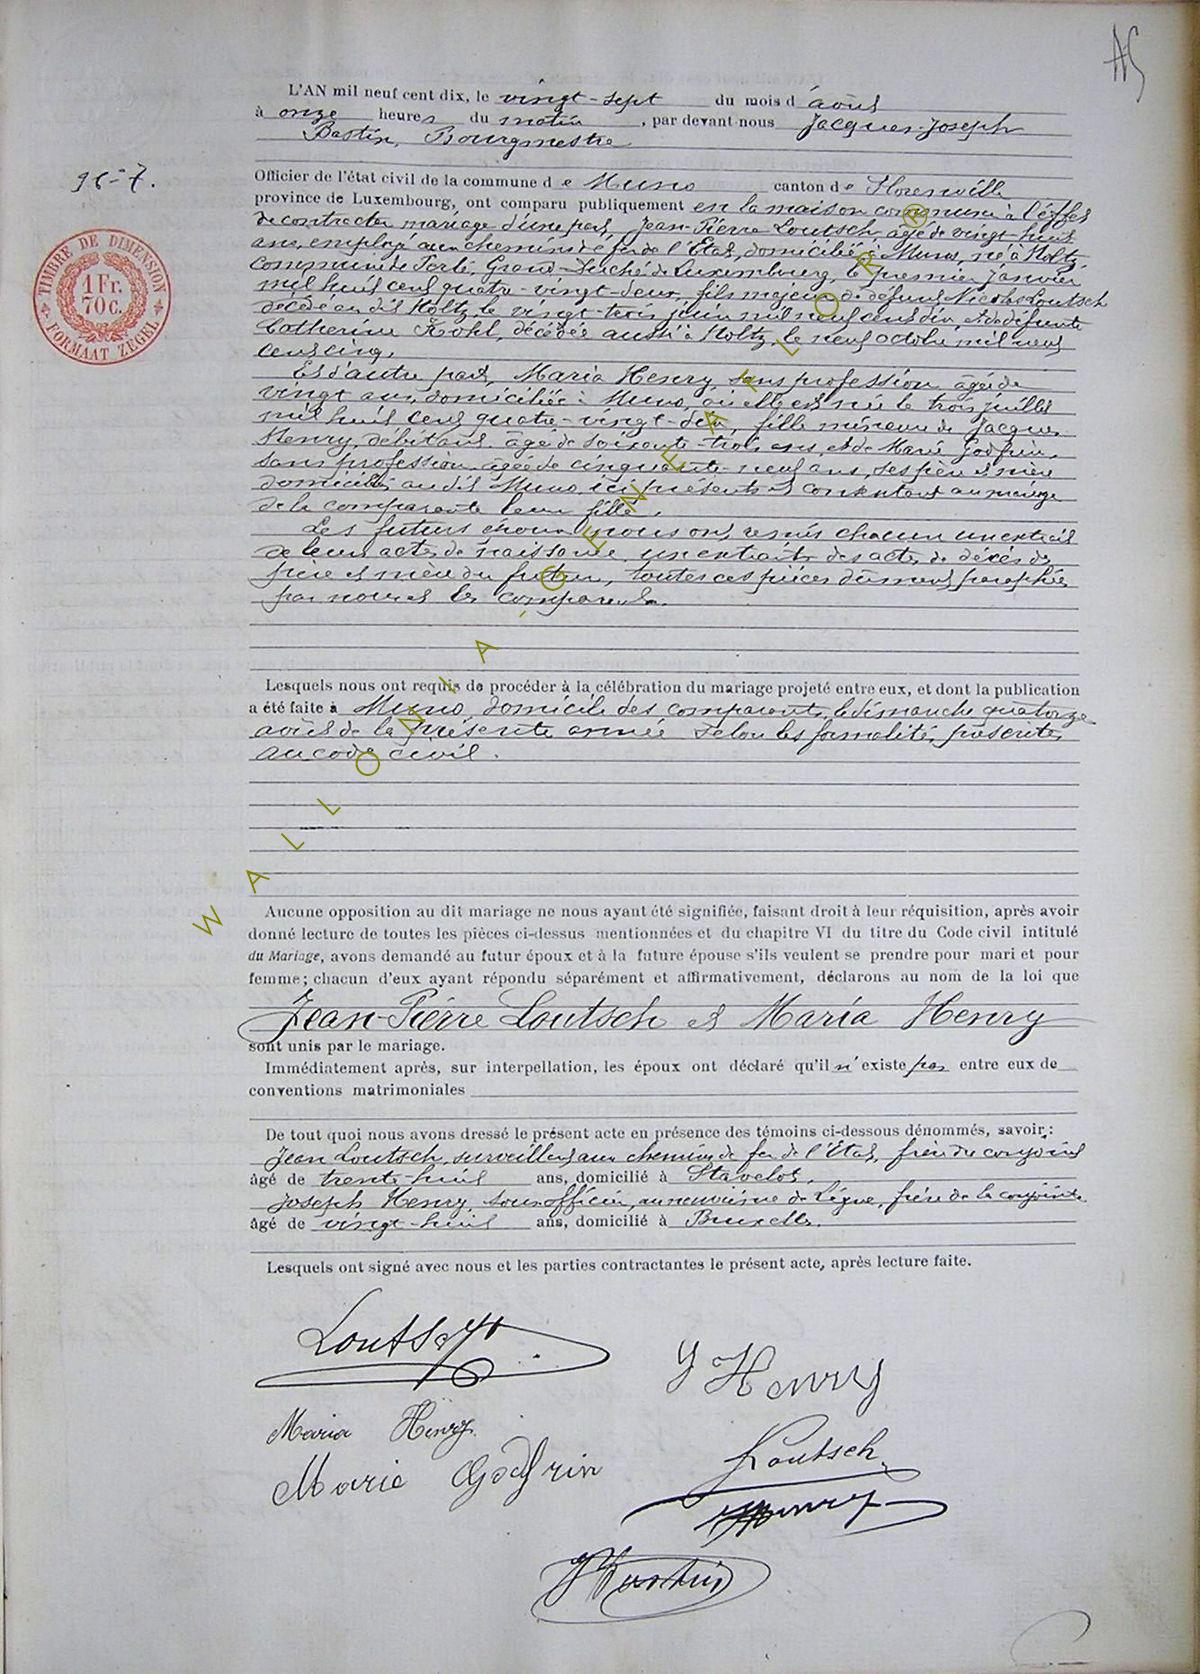 L'AN mil neuf cent dix, le vingt-sept du mois d'août
à onze heures du matin, par devant nous Jacques-Joseph
Bastin, Bourgmestre
91-7.
TIMBRE DE DIMENSION
1 Fr.
70 c.
FORMAAT ZEGEL
Officier de l'état civil de la commune de Muno canton de Florenville
province de Luxembourg, ont comparu publiquement en la maison commune à l'effet
de contracter mariage d'une part, Jean-Pierre Loutsch âgé de vingt-huit
ans, employé aux chemins de fer de l'Etat, domicilié à Muno, né à Holtz,
commune de Perlé, Grand-Duché de Luxembourg, le premier janvier
mil huit cent quatre-vingt-deux, fils majeur de défunt Nicolas Loutsch
décédé au dit Holtz, le vingt-trois juin mil neuf cent dix, et de défunte
Catherine Kohl, décédée aussi à Holtz, le neuf octobre mil neuf
cent cinq.
Et d'autre part, Maria Henry, sans profession, âgée de
vingt ans, domiciliée à Muno, où elle est née le trois juillet
mil huit cent quatre-vingt-dix, fille mineure de Jacques
Henry, débitant, âgé de soixante-trois ans, et de Marie Godfrin,
sans profession, âgée de cinquante-neuf ans, ses père et mère
domiciliés au dit Muno, ici présents et consentant au mariage
de la comparante leur fille.
Les futurs époux nous ont remis chacun un extrait
de leurs actes de naissance, un extrait des actes de décès des
père et mère du futur, toutes ces pièces dûment paraphées
par nous et les comparants.
Lesquels nous ont requis de procéder à la célébration du mariage projeté entre eux, et dont la publication
a été faite à Muno, domicile des comparants, le dimanche quatorze
août de la présente année selon les formalités prescrites
au code civil.
Aucune opposition au dit mariage ne nous ayant été signifiée, faisant droit à leur réquisition, après avoir
donné lecture de toutes les pièces ci-dessus mentionnées et du chapitre VI du titre du Code civil intitulé
du Mariage, avons demandé au futur époux et à la future épouse s'ils veulent se prendre pour mari et pour
femme; chacun d'eux ayant répondu séparément et affirmativement, déclarons au nom de la loi que
Jean-Pierre Loutsch et Maria Henry
sont unis par le mariage.
Immédiatement après, sur interpellation, les époux ont déclaré qu'il n'existe pas entre eux de
conventions matrimoniales
De tout quoi nous avons dressé le présent acte en présence des témoins ci-dessous dénommés, savoir:
Jean Loutsch, surveillant aux chemins de fer de l'Etat, frère du conjoint
âgé de trente-huit ans, domicilié à Stavelot,
Joseph Henry, sous-officier, au neuvième de Ligne, frère de la conjointe
âgé de vingt-huit ans, domicilié à Bruxelles.
Lesquels ont signé avec nous et les parties contractantes le présent acte, après lecture faite.
Loutsch
J Henry
Maria Henry
Marie Godfrin
Loutsch
Henry
J Bastin
WALLONIA-GENEALOR®